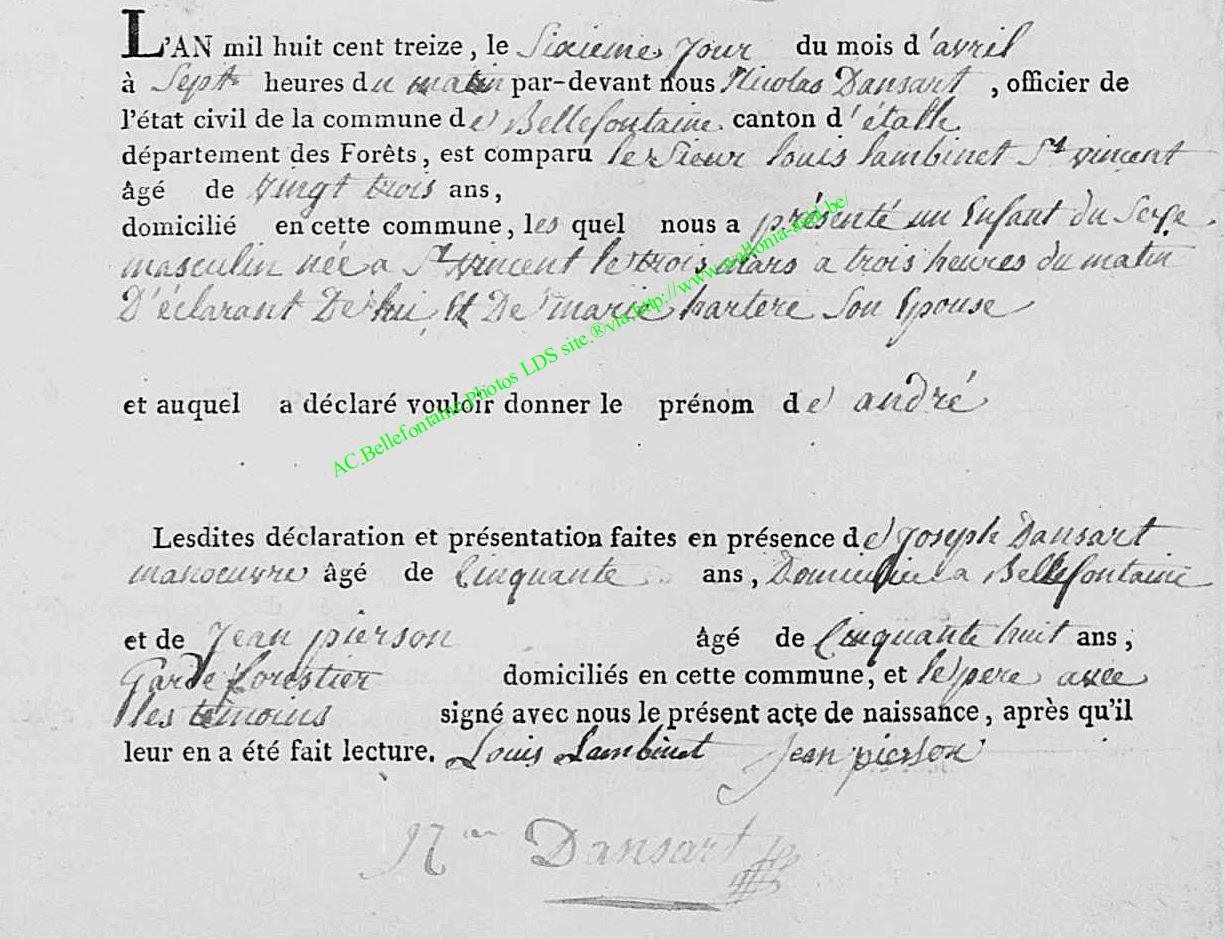 L'AN mil huit cent treize, le Sixieme Jour du mois d'avril
à Sept heures du matin par-devant nous Nicolas Dansart, officier de
l'état civil de la commune de Bellefontaine canton d'étalle
département des Forêts, est comparu le Sieur louis lambinet St vincent
âgé de vingt trois ans,
domicilié en cette commune, les quel nous a présenté un Enfant du Sexe
masculin née a St vincent le trois Mars a trois heures du matin
D'éclarant De lui Et De marie hartere Son Epouse
et auquel a déclaré vouloir donner le prénom de andré
Lesdites déclaration et présentation faites en présence de Joseph Dansart
manoeuvre âgé de Cinquante ans, Domicilie a Bellefontaine
et de Jean pierson âgé de Cinquante huit ans,
Garde forestier domiciliés en cette commune, et le pere avec
les temoins signé avec nous le présent acte de naissance, après qu'il
leur en a été fait lecture. Louis Lambinet Jean pierson
Nas Dansart
AC.Bellefontaine.Photos LDS site.®via.http://www.wallonia-asbl.be/